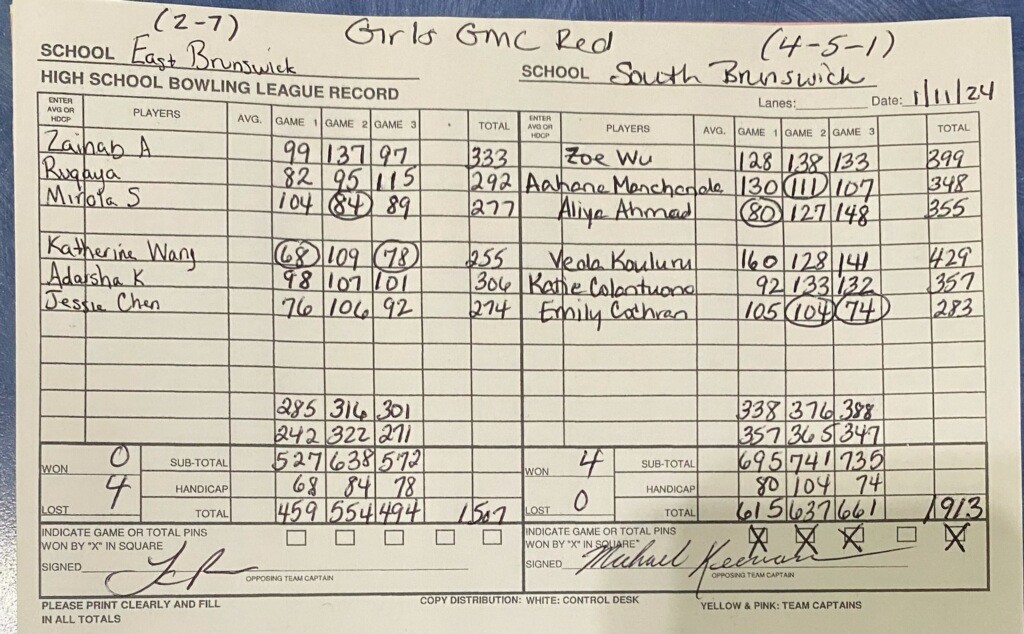 (2-7) Girls GMC Red (4-5-1)
SCHOOL East Brunswick SCHOOL South Brunswick
HIGH SCHOOL BOWLING LEAGUE RECORD Lanes: Date: 1/11/24
ENTER AVG OR HDCP PLAYERS AVG. GAME 1 GAME 2 GAME 3 TOTAL ENTER AVG OR HDCP PLAYERS AVG. GAME 1 GAME 2 GAME 3 TOTAL
Zainab A 99 137 97 333 Zoe Wu 128 138 133 399
Rugaya 82 95 115 292 Aahana Manchanda 130 111 107 348
Mirola S 104 84 89 277 Aliya Ahmad 80 127 148 355
Katherine Wang 68 109 78 255 Veda Kouluru 160 128 141 429
Adarsha K 98 107 101 306 Katie Colantuono 92 133 132 357
Jessie Chen 76 106 92 274 Emily Cochran 105 104 74 283
285 316 301 338 376 388
242 322 271 357 365 347
WON 0 SUB-TOTAL 527 638 572 WON 4 SUB-TOTAL 695 741 735
4 HANDICAP 68 84 78 0 HANDICAP 80 104 74
LOST TOTAL 459 554 494 1507 LOST TOTAL 615 637 661 1913
INDICATE GAME OR TOTAL PINS INDICATE GAME OR TOTAL PINS X X X X
WON BY "X" IN SQUARE WON BY "X" IN SQUARE"
SIGNED SIGNED Michael Keenan
OPPOSING TEAM CAPTAIN OPPOSING TEAM CAPTAIN
PLEASE PRINT CLEARLY AND FILL COPY DISTRIBUTION: WHITE: CONTROL DESK YELLOW & PINK: TEAM CAPTAINS
IN ALL TOTALS